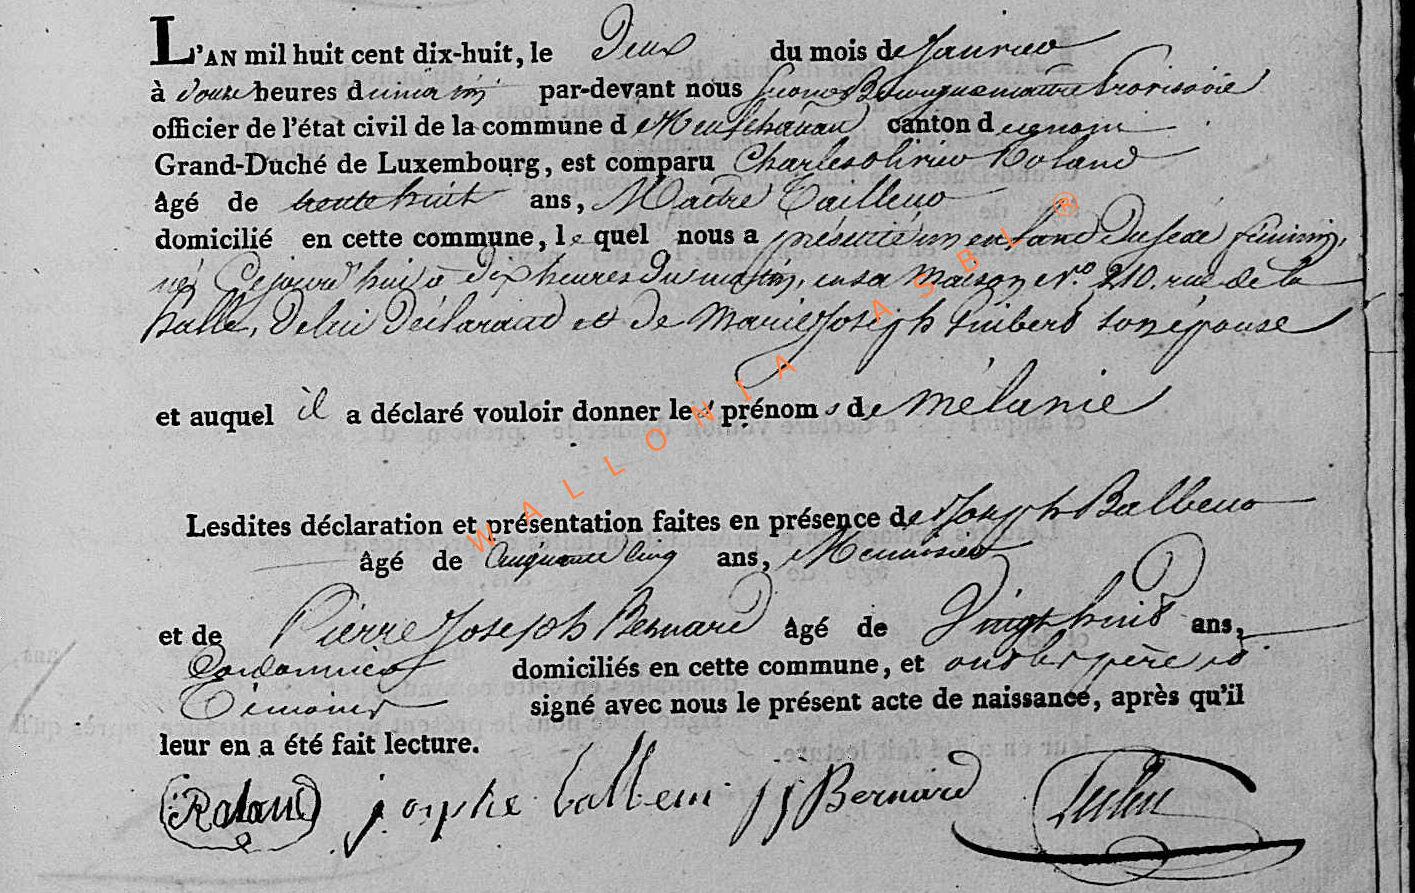 L'AN mil huit cent dix-huit, le Deux du mois de Janvier
à douze heures du matin par-devant nous Bourguemaitre Provisoire
officier de l'état civil de la commune de Neufchateau canton d
Grand-Duché de Luxembourg, est comparu Charles olivier Roland
âgé de trente huit ans, Maitre Tailleur
domicilié en cette commune, le quel nous a présenté un enfant du sexe féminin,
né Cejourd'hui à dix heures du matin, en sa maison No. 210. rue de la
halle, de lui Déclarant et de Marie Joseph Guibert son épouse
et auquel il a déclaré vouloir donner les prénoms de Mélanie
Lesdites déclaration et présentation faites en présence de Joseph Balbeur
âgé de Cinquante Cinq ans, Menuisier
et de Pierre Joseph Bernard âgé de Vingt huit ans,
Cordonnier domiciliés en cette commune, et ont les père et
Témoins signé avec nous le présent acte de naissance, après qu'il
leur en a été fait lecture.
Roland josephe balbeur pj Bernard
WALLONIA ASBL ®